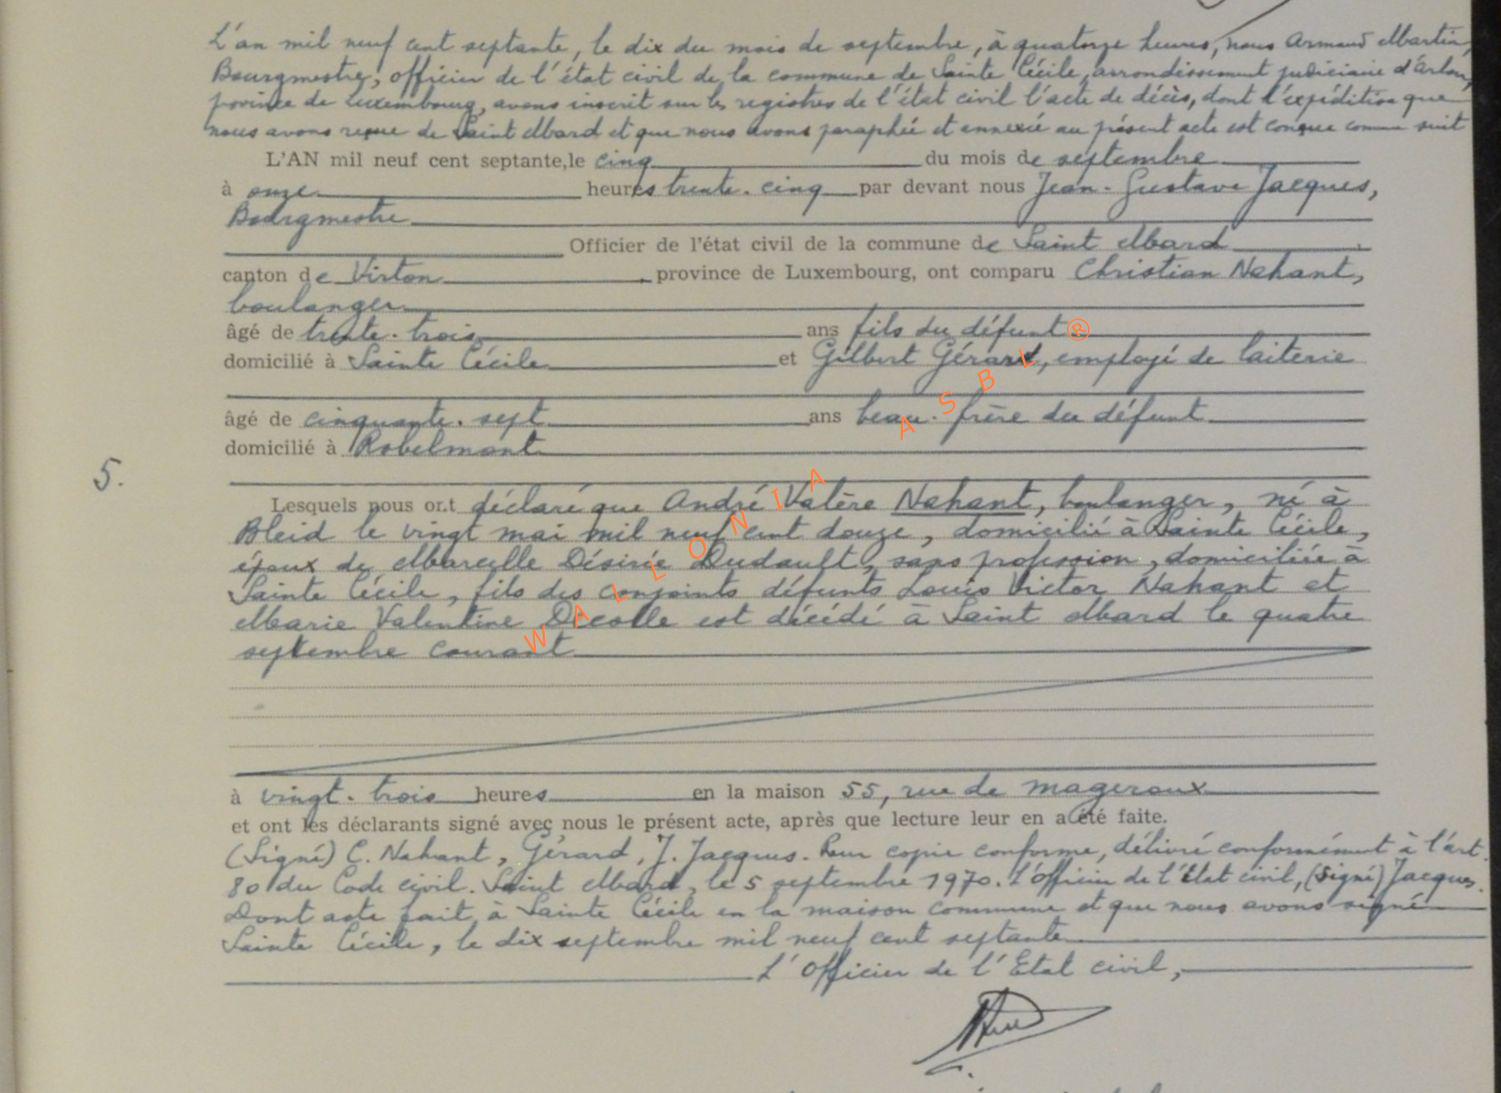 L'an mil neuf cent septante, le dix du mois de septembre, à quatorze heures, nous Armand Martin,
Bourgmestre, officier de l'état civil de la commune de Sainte Cécile, arrondissement judiciaire d'Arlon,
province de Luxembourg, avons inscrit sur les registres de l'état civil l'acte de décès, dont l'expédition que
nous avons reçue de Saint Mard et que nous avons paraphée et annexée au présent acte est conçue comme suit
L'AN mil neuf cent septante, le cinq du mois de septembre
à onze heures trente-cinq par devant nous Jean-Gustave Jacques,
Bourgmestre
Officier de l'état civil de la commune de Saint Mard
canton de Virton province de Luxembourg, ont comparu Christian Nahant,
boulanger
âgé de trente-trois ans fils du défunt
domicilié à Sainte Cécile et Gilbert Gérard, employé de laiterie
âgé de cinquante-sept ans beau-frère du défunt
domicilié à Robelmont
5.
Lesquels nous ont déclaré que André Valère Nahant, boulanger, né à
Bleid le vingt mai mil neuf cent douze, domicilié à Sainte Cécile,
époux de Marcelle Désirée Dudault, sans profession, domiciliée à
Sainte Cécile, fils des conjoints défunts Louis Victor Nahant et
Marie Valentine Decolle est décédé à Saint Mard le quatre
septembre courant
à vingt-trois heures en la maison 55, rue de Mageroux
et ont les déclarants signé avec nous le présent acte, après que lecture leur en a été faite.
(Signé) C. Nahant, Gérard, J. Jacques. Pour copie conforme, délivré conformément à l'art.
80 du Code civil. Saint Mard, le 5 septembre 1970. L'Officier de l'état civil, (Signé) Jacques.
Dont acte fait à Sainte Cécile en la maison commune et que nous avons signé
Sainte Cécile, le dix septembre mil neuf cent septante
L'Officier de l'Etat civil,
WALLONIA ASBL ®